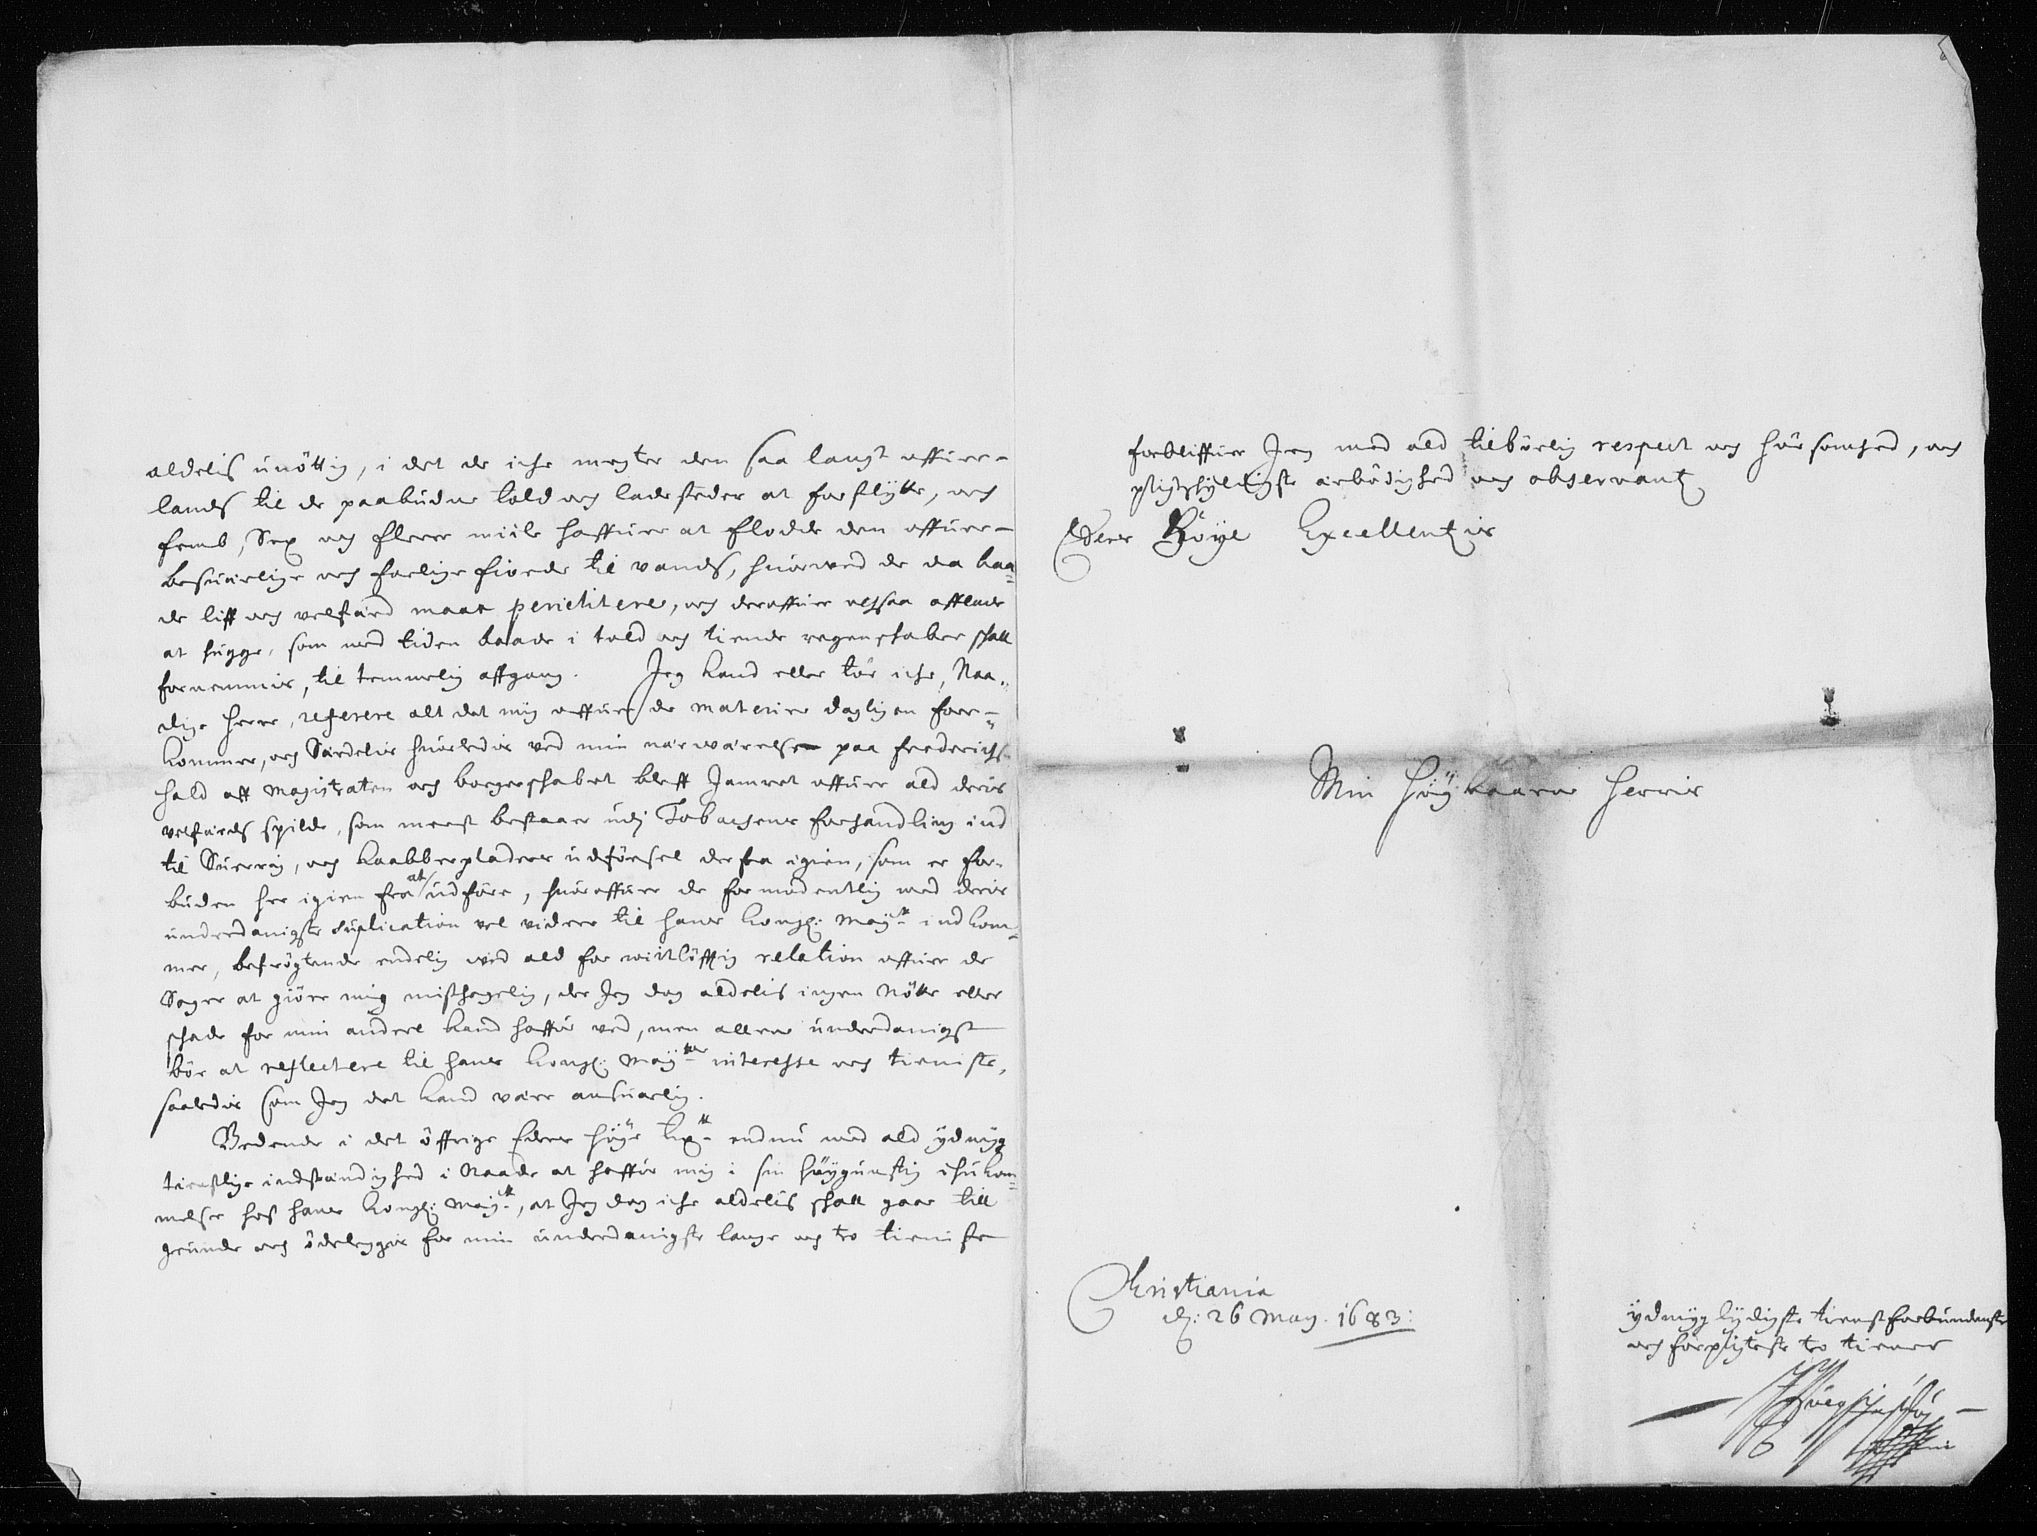 aldelis unöttig, i det de iche megter den saa langt offuer-
lands til de paabudne told och ladesteder at forflytte, och
femb, Sex och flere miile haffuer at flodde den offuer-
besuerlige och farlige fiorde til vands, huorved de da baa-
de liff och velferd maae periclitere, och deroffuer ochsaa afflade
at hugge, som med tiden baade i told och tiende regenskaber skall
fornemmis, til temmelig affgang. Jeg kand eller tör iche, Naa-
dige Herre, referere alt det mig offuer de materier dagligen fore-
kommer, och Særdelis huorledis ved min nærwærelse paa Friderichs-
hald aff magistraten och borgerschabet bleff Jamret offuer ald deris
velferds spilde, som meest bestaaer udj Tobachens forhandling ind
til Suerrig, och kaabberpladers udförsel derfra igien, som er for-
buden her igien fra at udföre, huoroffuer de formodentlig med deris
underdanigste suplication vel videre til hans kongl: May.tt indkom-
mer, befrögtende endelig ved ald for witlöfftig relation offuer de
Sager at giöre mig misshagelig, der Jeg dog aldelis ingen Nötte eller
schade for min andeel kand haffue ved, men alleene underdanigst
bör at reflectere til hans kongl: May.ttes interesse och tieniste,
saaledis som Jeg det kand være ansuarlig.
Bedende i det öffrige Eders höye Ex.tt endnu med ald ydmyg
tienstlige indstændighed i Naade at haffue mig i sin höygunstig ihukom-
melse hos hans kongl: May.tt, at Jeg dog iche aldelis schall gaae till
grunde och ödeleggis for min underdanigste lange och tro tieniste
forbliffuer Jeg med ald tilbörlig respect och hörsomhed, och
pligtskyldigste ærbödighed och observantz
Eders Höye Excellentzis
Min Höybaarne Herris
Christiania
d: 26 May. 1683:
ydmyg lydigste tienstforbundenste
och forpligteste tro tiener